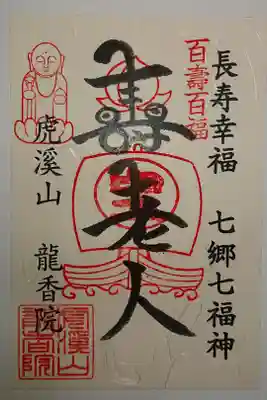 長寿幸福　七郷七福神
百壽百福
壽老人
虎溪山　龍香院
虎溪山
龍香院